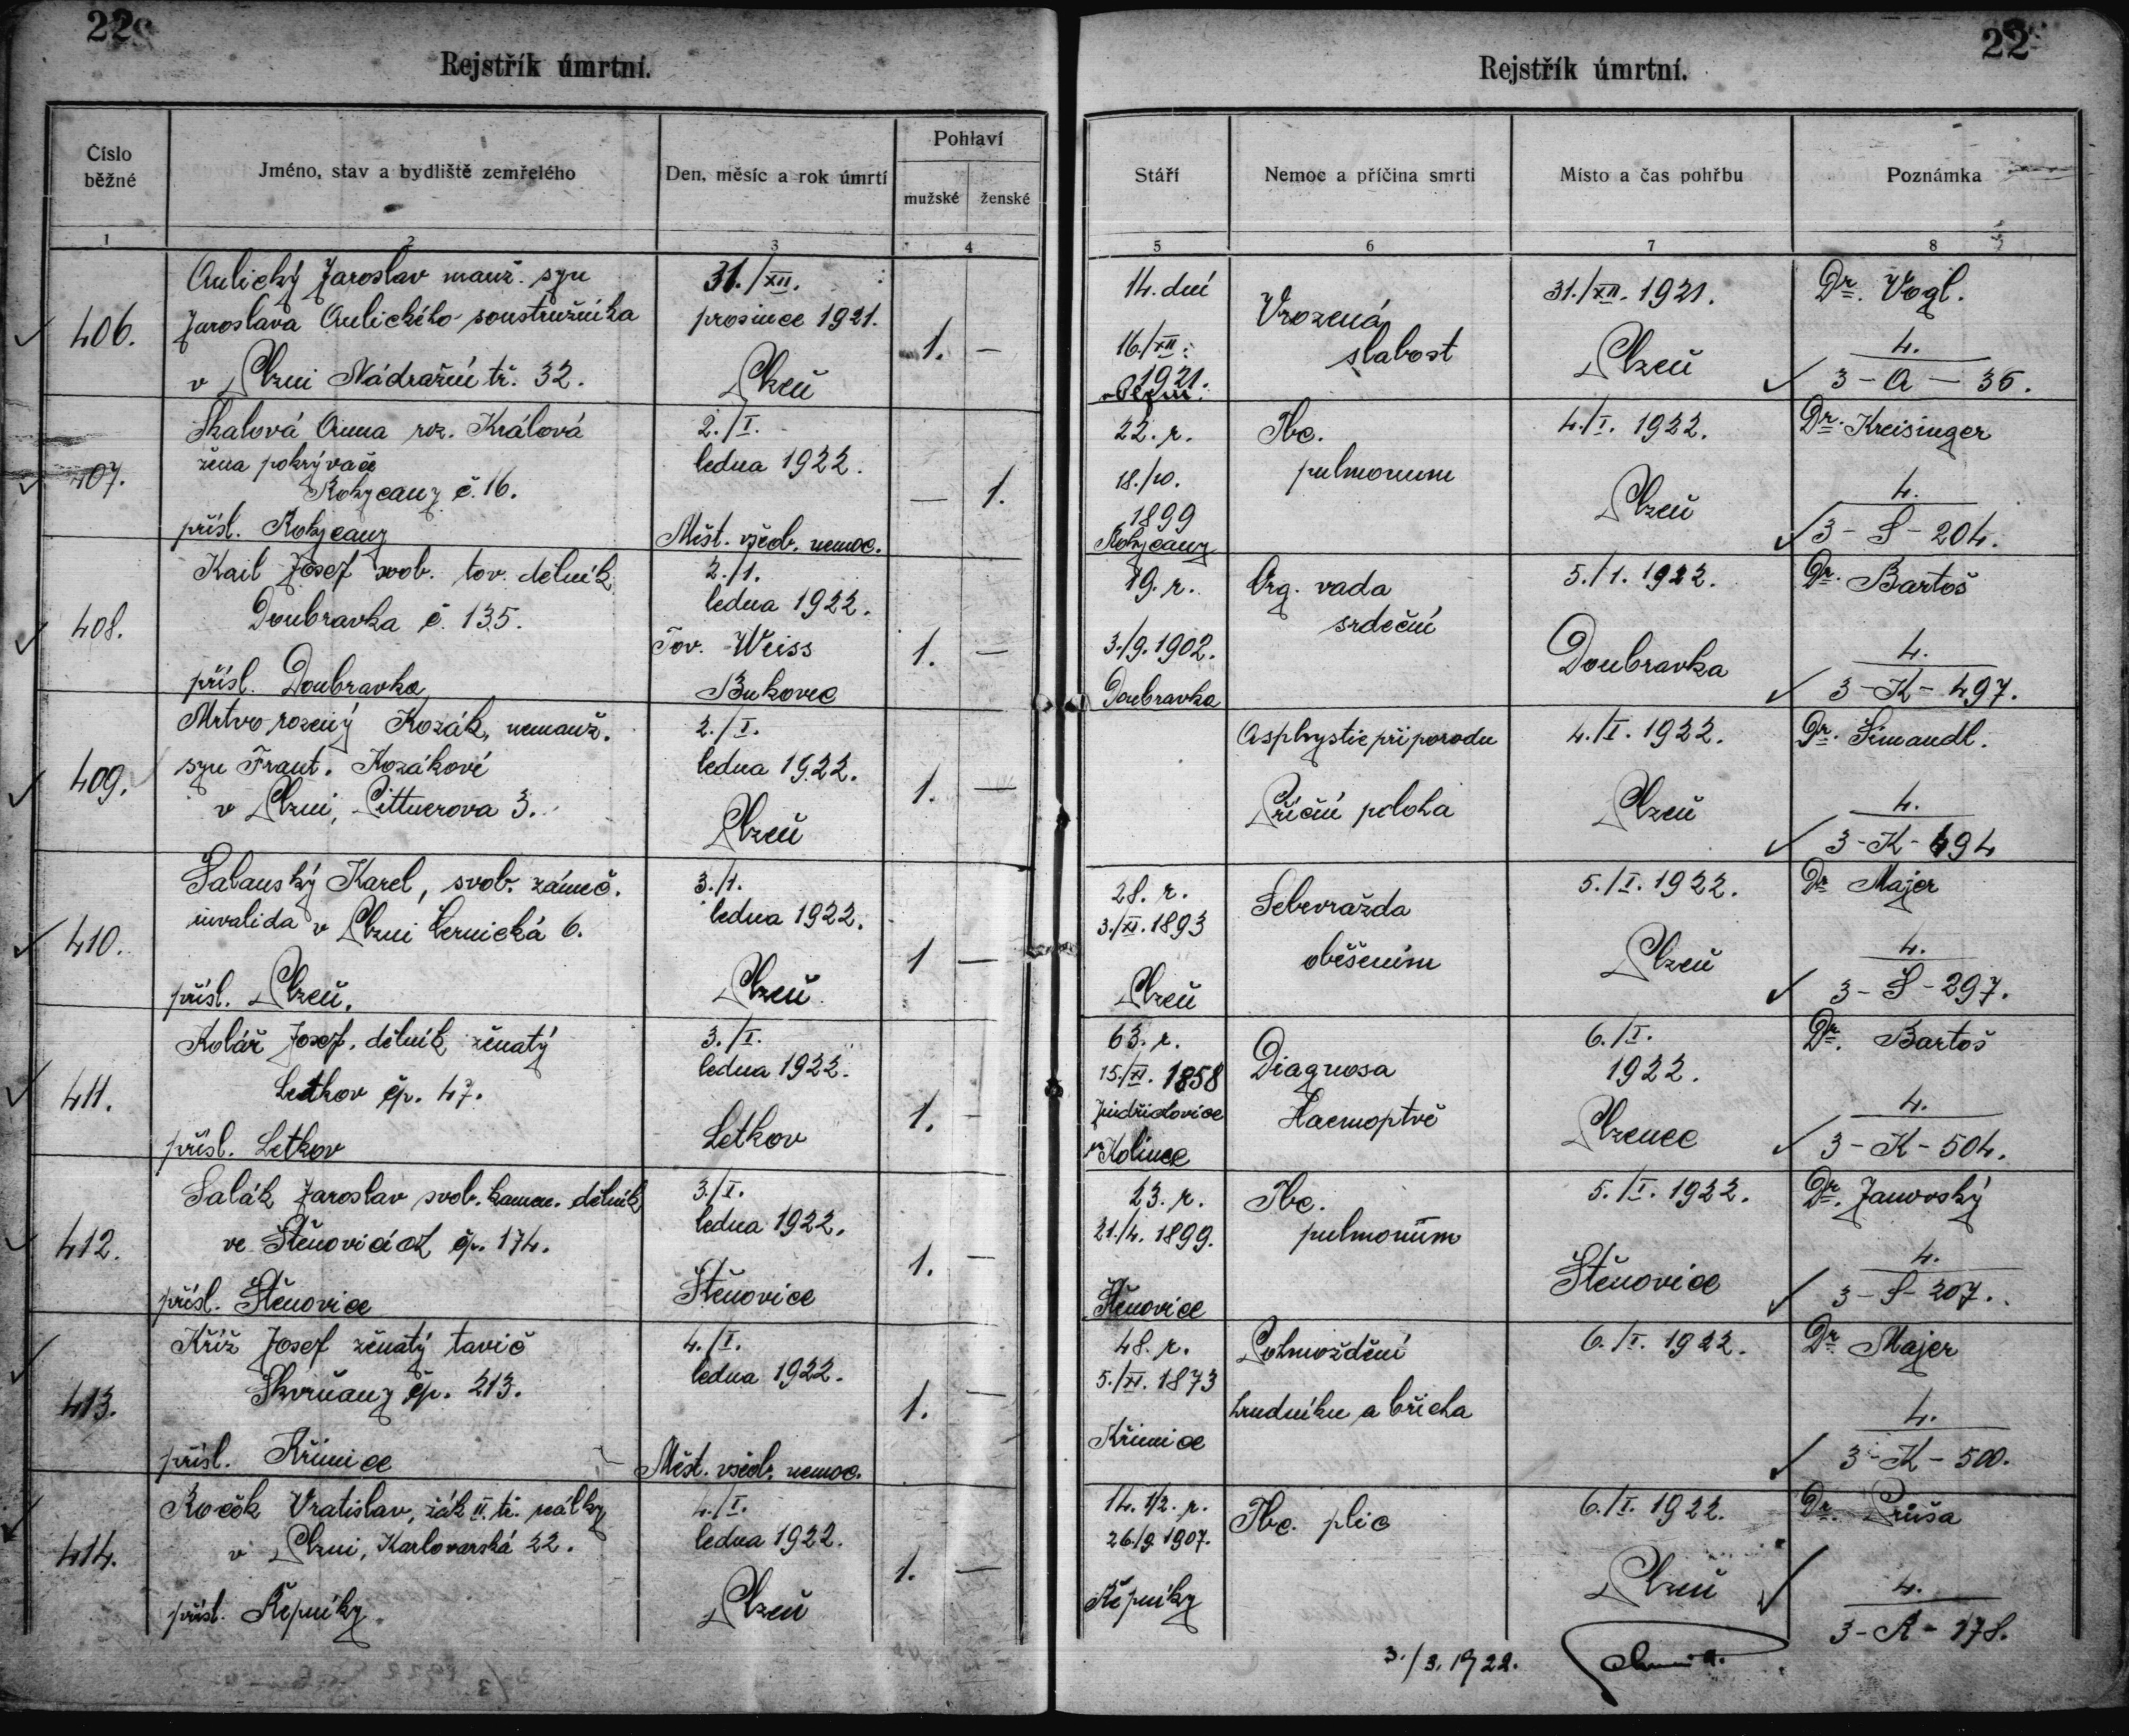 22
Rejstřík úmrtní.
Číslo běžné
Jméno, stav a bydliště zemřelého
Den, měsíc a rok úmrtí
Pohlaví
mužské
ženské
1
2
3
4
406.
Aulický Jaroslav manž. syn
Jaroslava Aulického soustružníka
v Plzni Nádražní tř. 32.
31./XII.
prosince 1921.
Plzeň
1.
—
407.
Skalová Anna roz. Králová
žena pokrývače
Rokycany č. 16.
přísl. Rokycany
2./I.
ledna 1922.
Měst. všeob. nemoc.
—
1.
408.
Kail Josef svob. tov. dělník
Doubravka č. 135.
přísl. Doubravka
2./1.
ledna 1922.
Tov. Weiss
Bukovec
1.
—
409.
Mrtvo rozený Kozák, nemanž.
syn Frant. Kozákové
v Plzni, Pittnerova 3.
2./I.
ledna 1922.
Plzeň
1.
—
410.
Šalanský Karel, svob. zámeč.
invalida v Plzni Černická 6.
přísl. Plzeň.
3./1.
ledna 1922.
Plzeň
1
—
411.
Kolář Josef, dělník ženatý
Letkov čp. 47.
přísl. Letkov
3./I.
ledna 1922.
Letkov
1.
-
412.
Salák Jaroslav svob. kamen. dělník
ve Štěnovicích čp. 174.
přísl. Štěnovice
3./I.
ledna 1922.
Štěnovice
1.
—
413.
Kříž Josef ženatý tavič
Skvrňany čp. 213.
přísl. Křimice
4./I.
ledna 1922.
Měst. všeob. nemoc.
1.
—
414.
Vratislav, žák II. tř. reálky
v Plzni, Karlovarská 22.
přísl. Řepníky
4./I.
ledna 1922.
Plzeň
1.
—
22
Rejstřík úmrtní.
Stáří
Nemoc a příčina smrti
Místo a čas pohřbu
Poznámka
5
6
7
8
14. dní
16./XII.
1921.
Vrozená
slabost
31./XII. 1921.
Plzeň
Dr. Vogl.
4.
3 - A - 36.
22. r.
18./10.
1899
Rokycany
Tbc.
pulmonum
4./I. 1922.
Plzeň
Dr. Kreisinger
4.
3 - S - 204.
19. r.
3./9. 1902.
Doubravka
Org. vada
srdeční
5./1. 1922.
Doubravka
Dr. Bartoš
4.
3 - K - 497.
Asphystie při porodu
Příční poloha
4./I. 1922.
Plzeň
Dr. Šimandl.
4.
3 - K - 494
28. r.
3./XI. 1893
Plzeň
Sebevražda
oběšením
5./I. 1922.
Plzeň
Dr Majer
4.
3 - Š - 297.
63. r.
15./XI. 1858
Jindřichovice
Kolince
Diagnosa
Haemoptoë
6./I.
1922.
Plzenec
Dr. Bartoš
4.
3 - K - 504.
23. r.
21./4. 1899.
Štěnovice
Tbc.
pulmonum
5./I. 1922.
Štěnovice
Dr. Janovský
4.
3 - S - 207.
48. r.
5./XI. 1873
Křimice
Pohmoždění
hrudníku a břicha
6./I. 1922.
Dr. Majer
4.
3 - K - 500.
14. 1/2. r.
26./9. 1907.
Řepníky
Tbc. plic
6./I. 1922.
Plzeň
Dr. Průša
4.
3 - R - 178.
3./3. 1922.